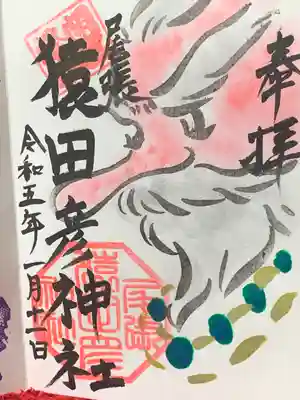 奉拝
尾張
猿田彦神社
令和五年一月十一日